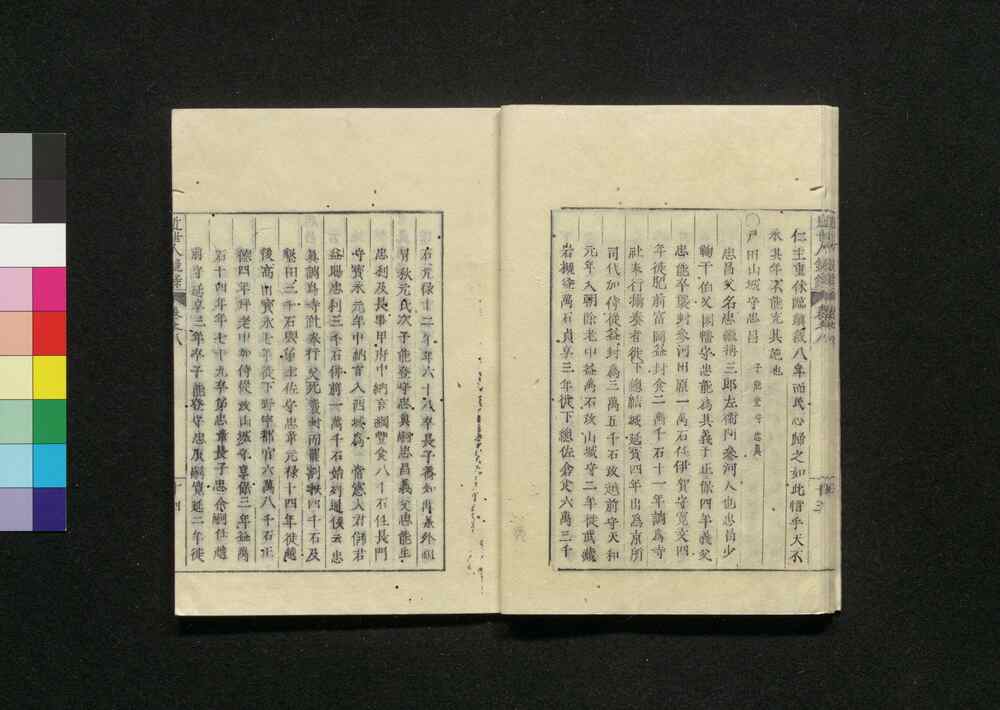 仁主重休臨鎮緱八年而民心歸之如此惜乎天不
永其年不能充其施也
戸田山城守忠昌 子能登守忠眞
忠昌父名忠繼稱三郎左衛門參河人也忠昌少
鞠于伯父因幡守忠能為其義子正保四年義父
忠能卒襲封參河田原一萬石任伊賀守寛文四
年徙肥前富岡益封食二萬千石十一年謫為寺
社奉行揚奏者徙下總結城延寶四年出為京所
司代加侍從益封為三萬五千石改越前守天和
元年入朝除老中益萬石改山城守二年徙武藏
岩槻益萬石貞享三年徙下總佐倉食六萬三千
石元禄十二年卒年六十八卒長子
早秋元氏次子能登守忠眞嗣忠昌義父忠能生
忠利及長事甲府中納言綱豐食八千石任長門
守寶永元年中納言入西城為
益賜忠利三千石併前一萬千石始列諸侯云忠
眞詞寺社奉行父死襲封而割授四千石及
墾田三千石與第土佐守忠章元禄十四年徙越
後高田寶永七年徙下野宇都宮六萬八千石正
德四年拜老中加侍從改山城守享保三年益萬
石十四年卒年七十九卒弟忠章長子忠余嗣任越
前守延享三年卒子能登守忠盈嗣寛延二年徙
近世人鏡録
卷之八